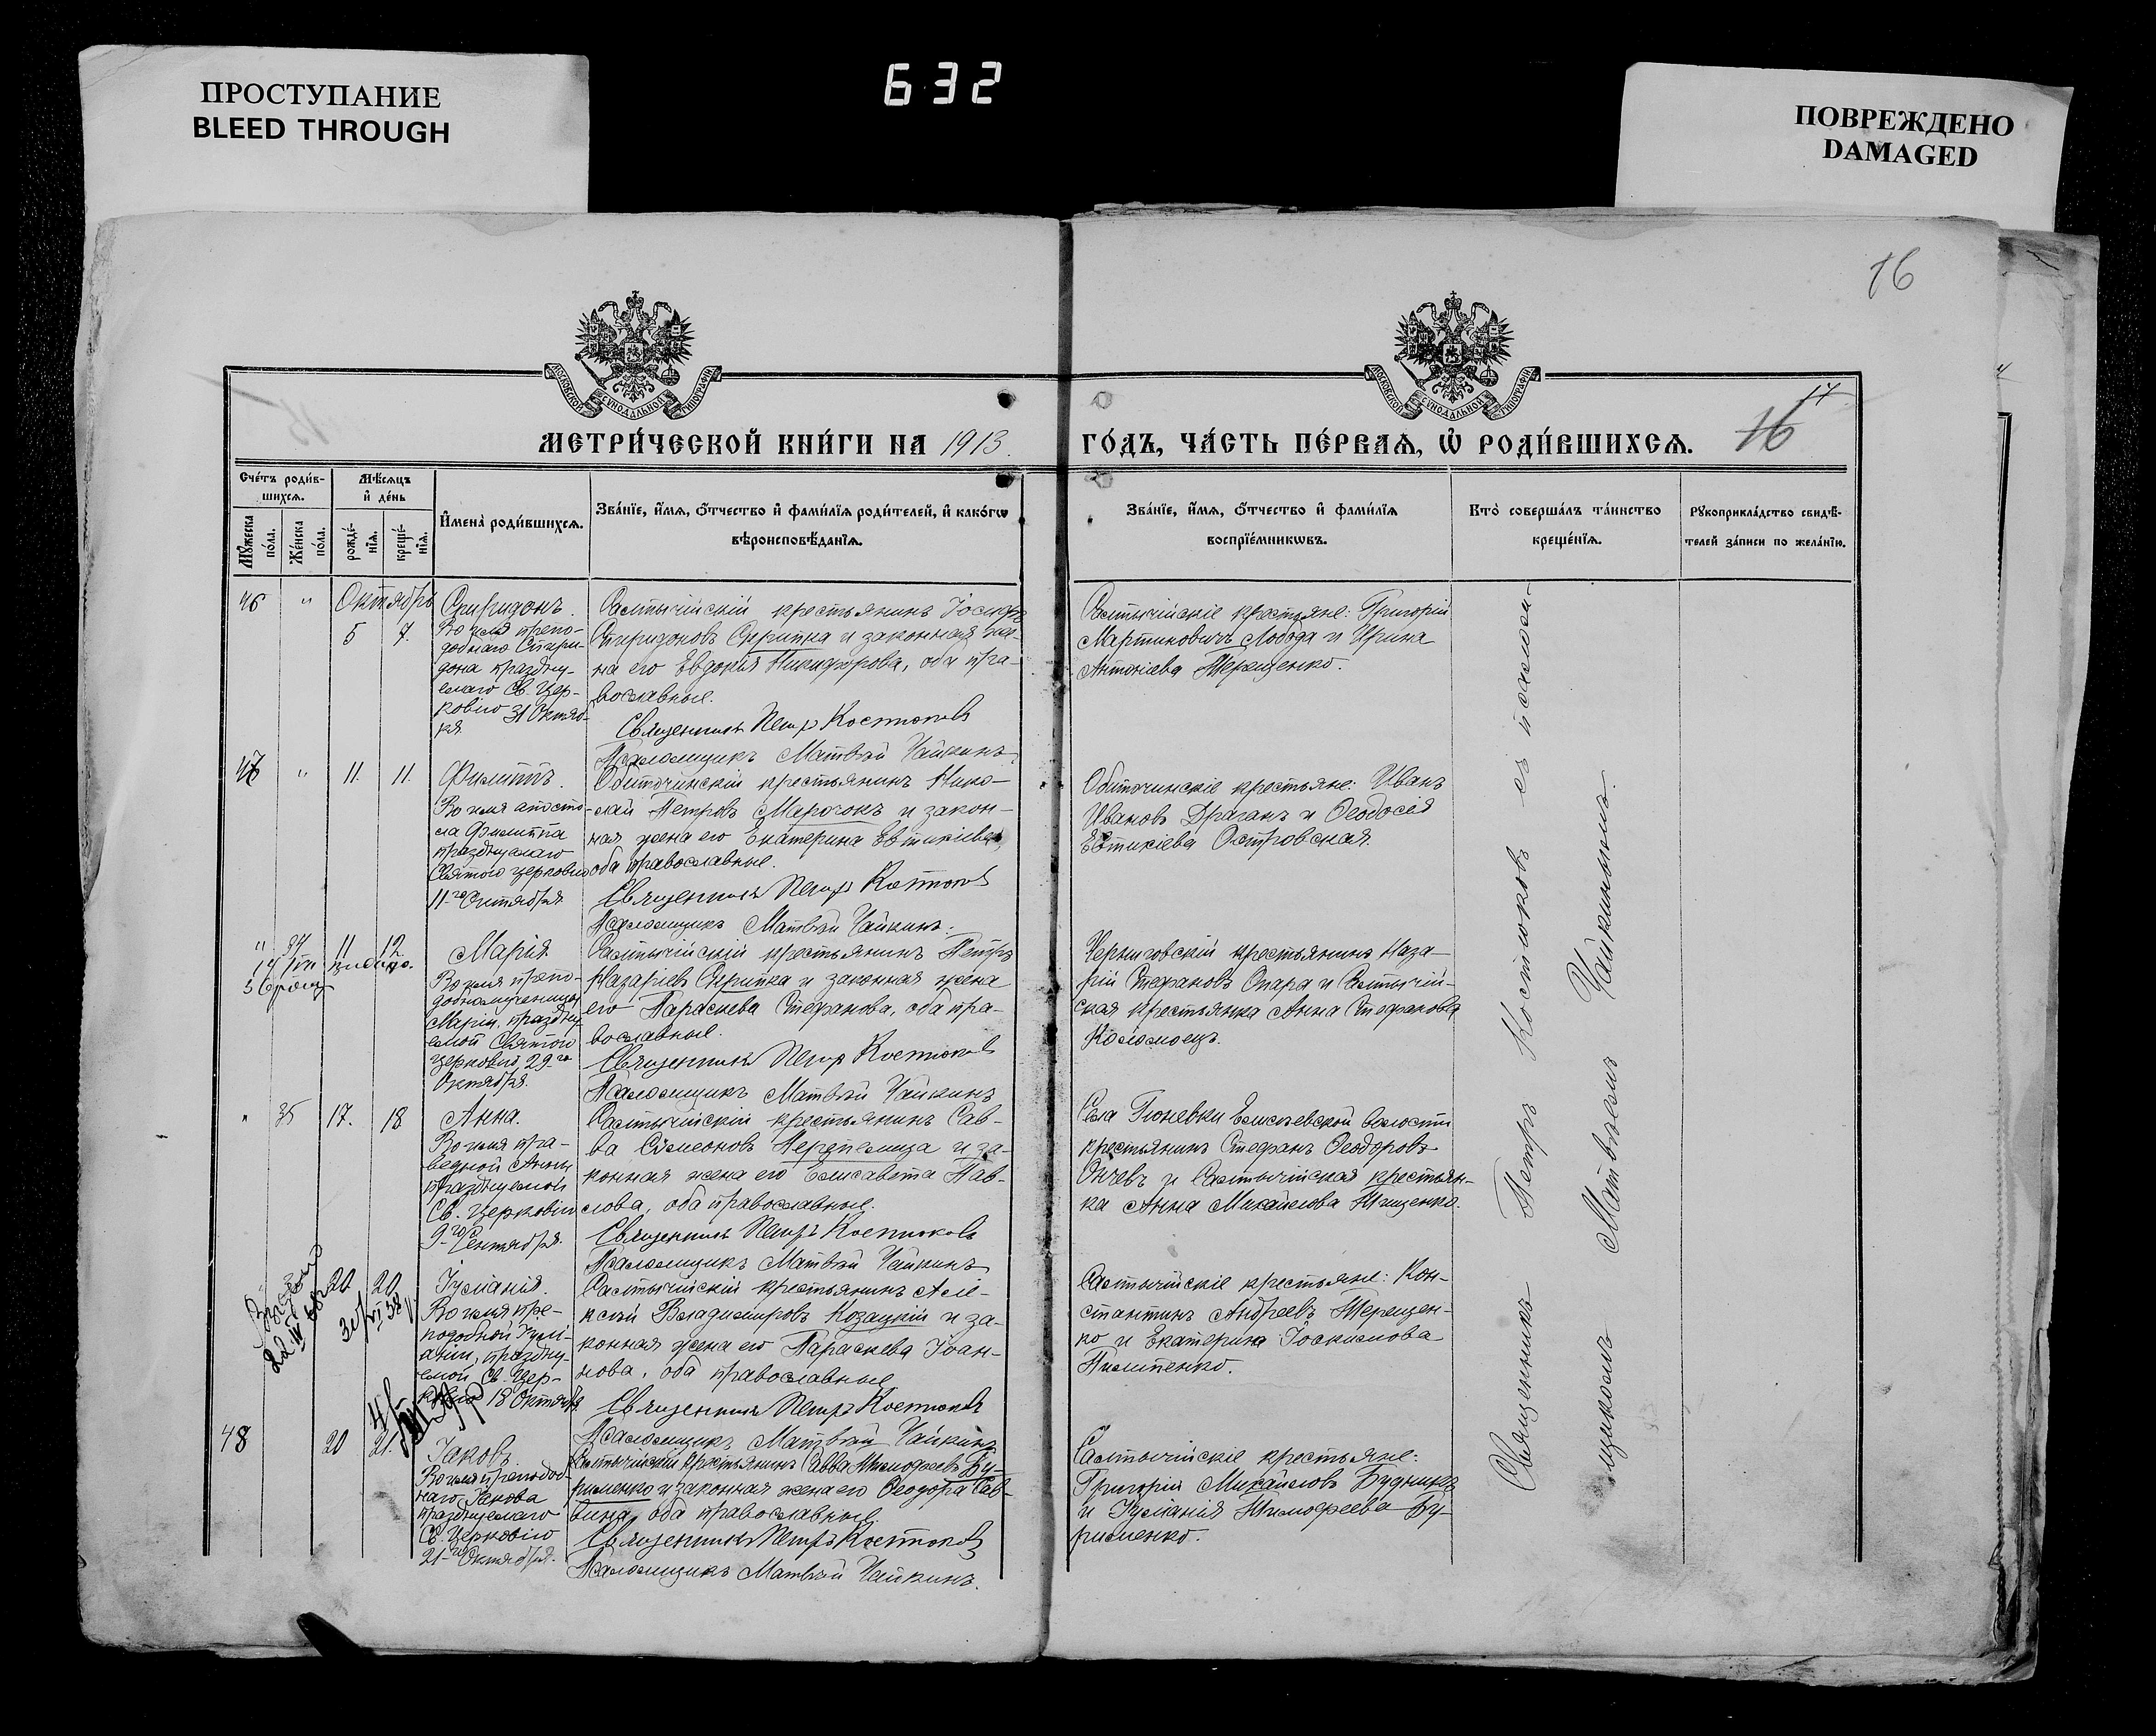 ПРОСТУПАНИЕ
BLEED THROUGH
632
ПОВРЕЖДЕНО
DAMAGED
16
МОСКОВСКОЙ СѴНОДАЛЬНОЙ ТИПОГРАФІИ
МОСКОВСКОЙ СѴНОДАЛЬНОЙ ТИПОГРАФІИ
МЕТРИ́ЧЕСКОЙ КНИ́ГИ НА 1913.
ГО́ДЪ, ЧА́СТЬ ПЕ́РВАѦ, Ѡ҆ РОДИ́ВШИХСѦ.
17
16
Сче́тъ роди́в-
шихсѧ.
Мѣ́сѧцъ
и҆ де́нь
Мꙋ́жеска
по́ла.
Же́нска
по́ла.
рожде́-
нїѧ.
креще́-
нїѧ.
И҆мена̀ роди́вшихсѧ.
Зва́нїе, и҆́мѧ, ѻ҆́тчество и҆ фами́лїѧ роди́телей, и҆ како́гѡ
вѣроисповѣ́данїѧ.
Зва́нїе, и҆́мѧ, ѻ҆́тчество и҆ фами́лїѧ
воспрїе́мникѡвъ.
Кто̀ соверша́лъ та́инство
креще́нїѧ.
Рꙋкоприкла́дство свидѣ́-
телей за́писи по жела́нїю.
46 " Октябрь
5 7.
Спиридонъ.
Во имя препо-
добнаго Спири-
дона праздну-
емаго Св. Цер-
ковію 31 Октяб-
ря.
Салтычійскій крестьянинъ Іосифъ
Спиридоновъ Скрипка и законная же-
на его Евдокія Никифорова, оба пра-
вославные.
Священникъ Петръ Костюковъ
Псаломщикъ Матвѣй Чайкинъ
Салтычійскіе крестьяне: Григорій
Мартиновичъ Лобода и Ирина
Антоніева Терещенко.
47 " 11. 11.
Филиппъ.
Во имя апосто-
ла Филиппа
празднуемаго
Святою церковію
11-го Октября
Обиточинскій крестьянинъ Нико-
лай Петровъ Марочокъ и закон-
ная жена его Екатерина Евтихіева,
оба православные.
Священникъ Петръ Костюковъ
Псаломщикъ Матвѣй Чайкинъ.
Обиточинскіе крестьяне: Иванъ
Ивановъ Драганъ и Ѳеодосія
Евтихіева Островская.
" 34 11 12
Марія.
Во имя препо-
добномученицы
Маріи, праздну-
емой Святою
церковію 29-го
Октября.
Салтычійскій крестьянинъ Петръ
Назаріевъ Скрипка и законная жена
его Параскева Стефанова, оба пра-
вославные.
Священникъ Петръ Костюковъ
Псаломщикъ Матвѣй Чайкинъ
Черниговскій крестьянинъ Наза-
рій Стефановъ Опара и Салтычій-
ская крестьянка Анна Стефанова
Коломоецъ.
" 35 17. 18
Анна.
Во имя пра-
ведной Анны
празднуемой
Св. Церковію
9-го Сентября.
Салтычійскій крестьянинъ Сав-
ва Симеоновъ Перепелица и за-
конная жена его Елисавета Пав-
лова, оба православные.
Священникъ Петръ Костюковъ
Псаломщикъ Матвѣй Чайкинъ
Села Гюневки Елисѣевской волости
крестьянинъ Стефанъ Ѳеодоровъ
и Салтычійская крестьян-
ка Анна Михайлова Тищенко.
20 20
Іуліанія.
Во имя пре-
подобной Іулі-
аніи, праздну-
емой Св. Цер-
ковію 18 Октября
Салтычійскій крестьянинъ Але-
ксѣй Владиміровъ Козацкій и за-
конная жена его Параскева Іоан-
нова, оба православные
Священникъ Петръ Костюковъ
Псаломщикъ Матвѣй Чайкинъ
Салтычійскіе крестьяне: Кон-
стантинъ Андреевъ Терещен-
ко и Екатерина Іоакимова
Пилипенко.
48 20 21.
Іаковъ.
Во имя преподоб-
наго Іакова
празднуемаго
Св. Церковію
21-го Октября.
Салтычійскій крестьянинъ Савва Тимофеевъ Бу-
рименко и законная жена его Ѳеодора Сав-
вина, оба православные.
Священникъ Петръ Костюковъ
Псаломщикъ Матвѣй Чайкинъ.
Салтычійскіе крестьяне:
Григорій Михайловъ Будникъ
и Іуліанія Тимофеева Бу-
рименко.
Священникъ Петръ Костюковъ съ псалом-
щикомъ Матвѣемъ Чайкинымъ.